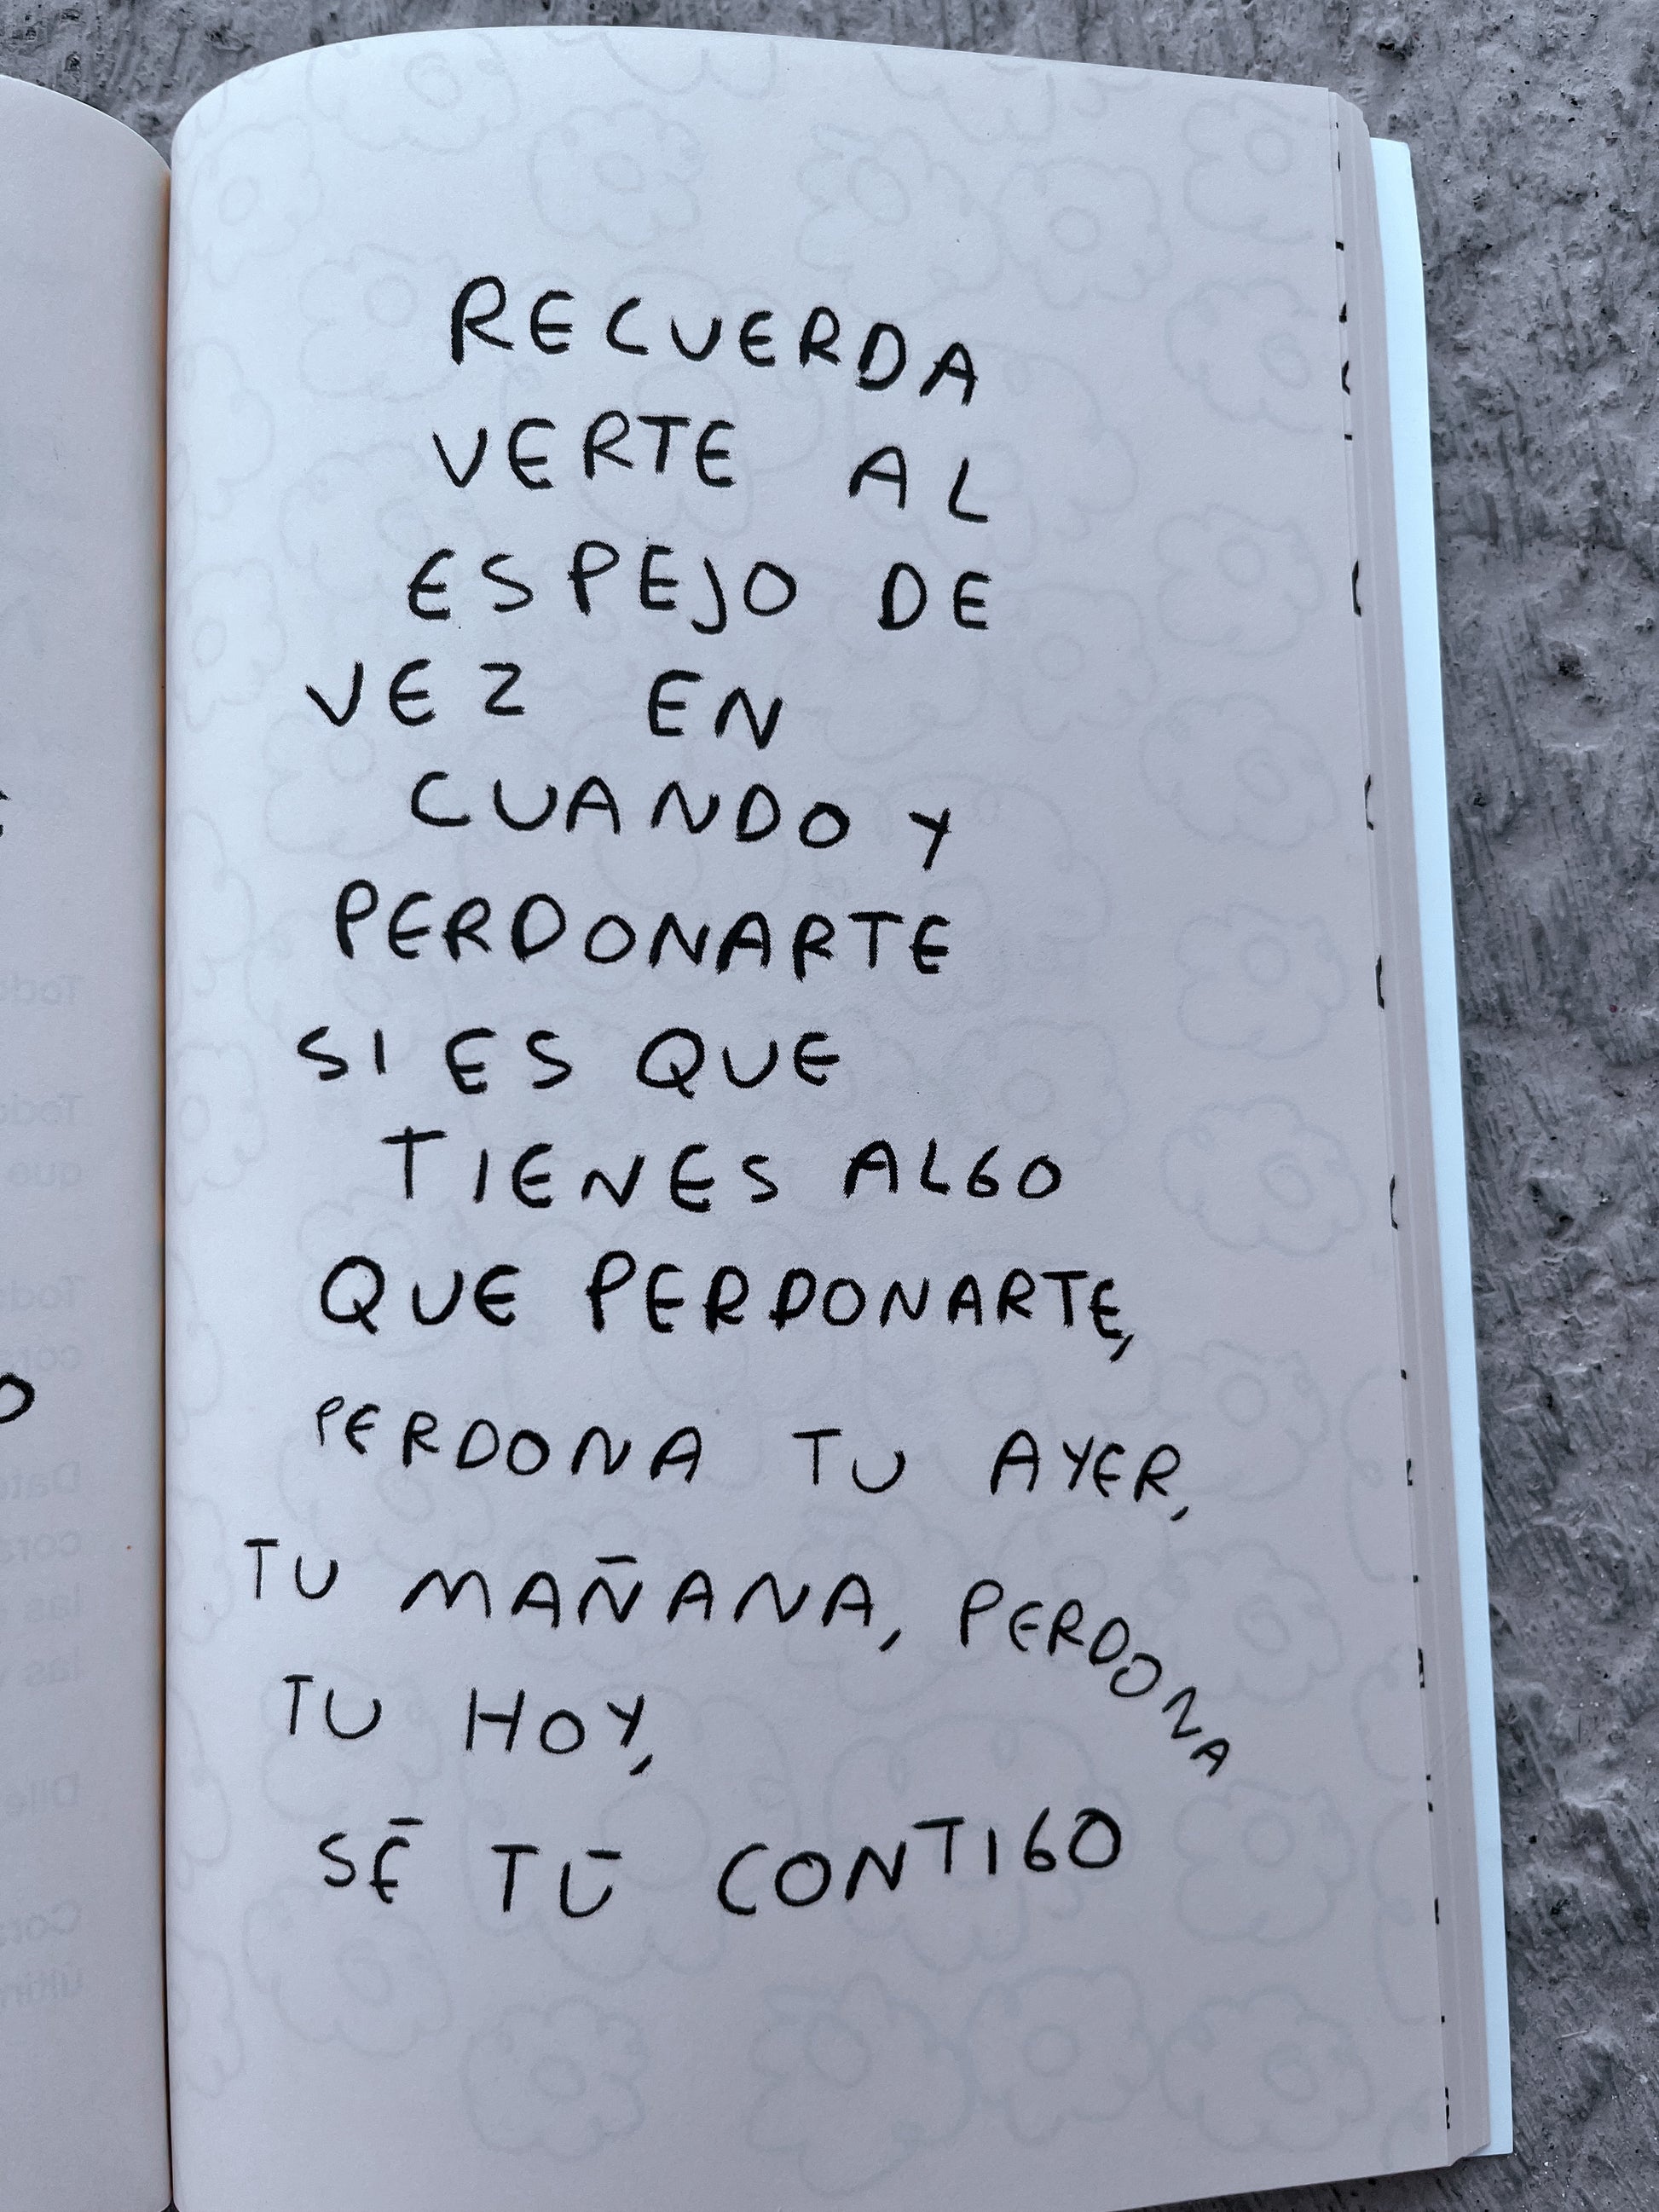 RECUERDA
VERTE AL
ESPEJO DE
VEZ EN
CUANDO Y
PERDONARTE
SI ES QUE
TIENES ALGO
QUE PERDONARTE,
PERDONA TU AYER,
TU MAÑANA, PERDONA
TU HOY,
SÉ TÚ CONTIGO